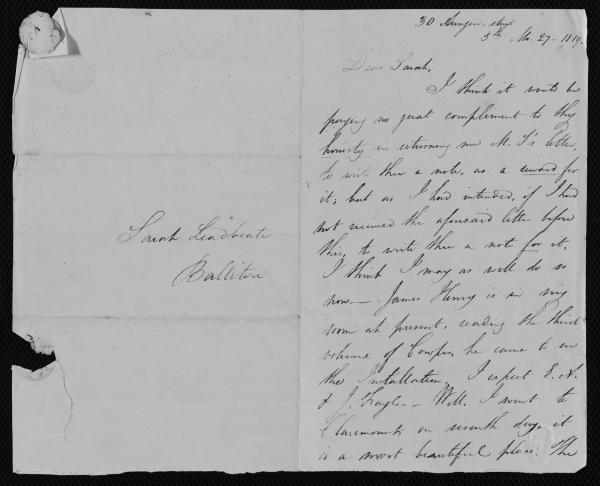 Sarah Leadbeater
Ballitore
30 Aungier-street
5th Mo. 27 - 1819.
Dear Sarah,
I think it wouldn't be
paying no great compliment to thy
honesty in returning me M. S's letter,
to write thee a note, as a reward for
it; but as I had intended, if I had
not received the aforesaid letter before
this, to write thee a note for it,
I think I may as well do so
now — James Henry is in my
room at present, reading the third
volume of Cowper, he came to see
the Installation. I expect E. A.
& J. — Well, I went to
Claremont on seventh day, it
is a most beautiful place. The